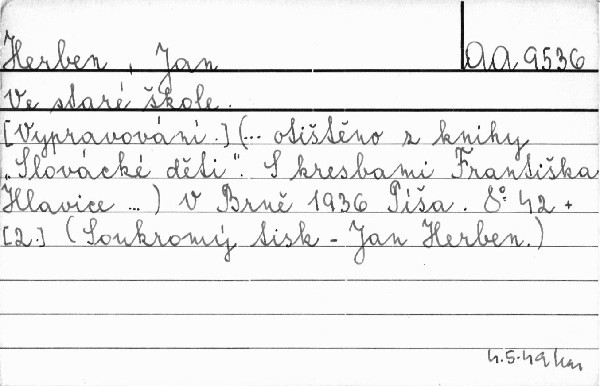 Herben, Jan aa 9536
Ve staré škole.
[Vypravování.] (... otištěno z knihy
„Slovácké děti". S kresbami Františka
Hlavice ...) V Brně 1936 Píša. 8° 42 +
[2.] (Soukromý tisk - Jan Herben.)
4.5.49